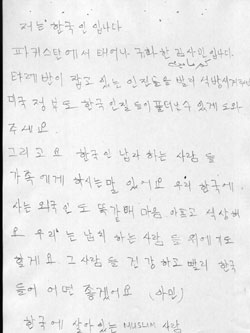 저는 한국인 입니다
파키스탄에서 태어나 귀화한 김사민 입니다
잡고 있는 인질들을 빨리 석방
미국 정부도 한국인 인질 들이 풀려날수 있게 도와
주세요
그리고요 한국인 남자 하는 사람 들
가족 에게 하시는말 있어요 우리 한국에
사는 외국인 도 똑같애 마음 아프고 속상해
요 우리는 남치 하는 사람 들 위에 기도
할게요 그사람들 건강하고 빨리 한국
들어 어면 좋겠어요 (아민)
한국에 살아 있는 사람